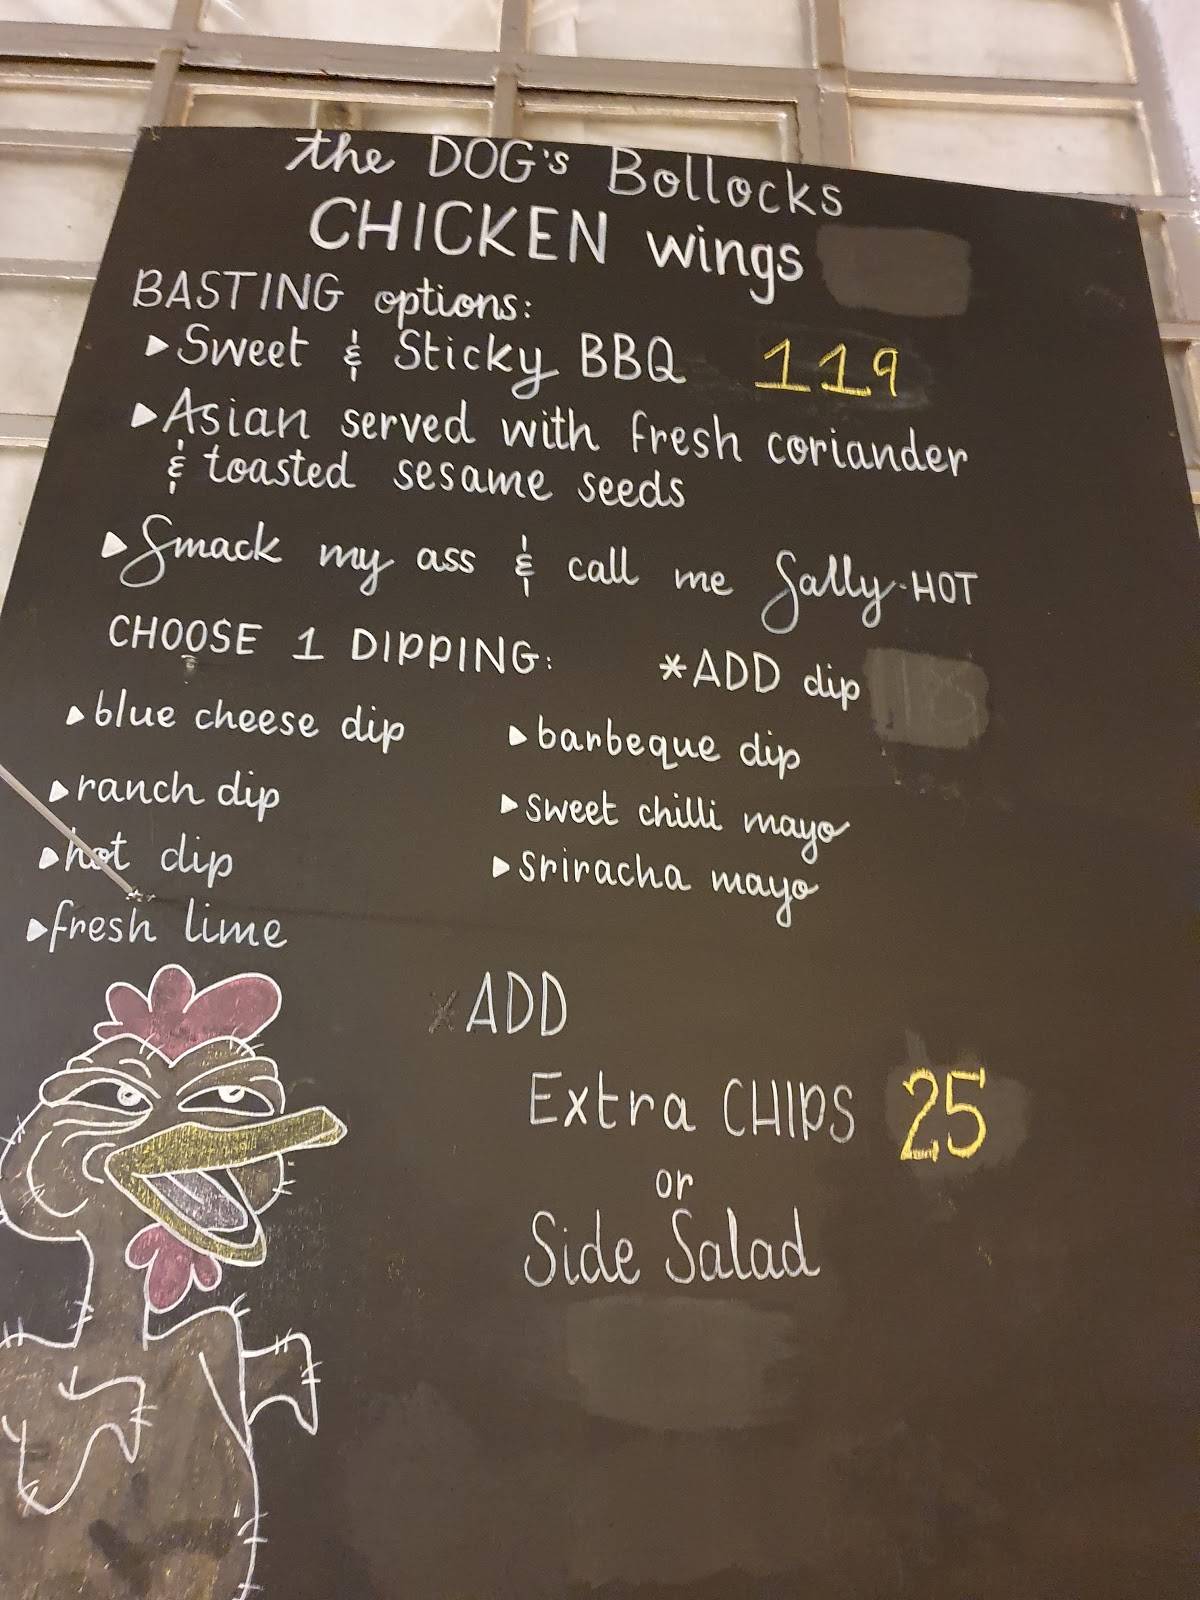 the DOG's Bollocks
CHICKEN wings
BASTING options:
▸Sweet & Sticky BBQ 119
▸Asian served with fresh coriander
& toasted sesame seeds
▸Smack my ass & call me Sally-HOT
CHOOSE 1 DIPPING: *ADD dip
▸blue cheese dip ▸barbeque dip
▸ranch dip ▸sweet chilli mayo
▸hot dip ▸sriracha mayo
▸fresh lime
*ADD
Extra CHIPS 25
or
Side Salad